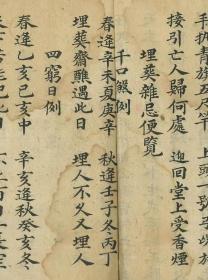 手执青旗五尺竿
上頭一號
接引亡人歸何處
迎回堂上受香煙
埋葬雜忌便覧
千口殺例
春逢辛未夏庚辛
秋逢壬子冬丙丁
埋葬齋醮遇此日
埋人不久又埋人
四窮日例
春逢乙亥亥中
辛亥逢秋癸亥冬